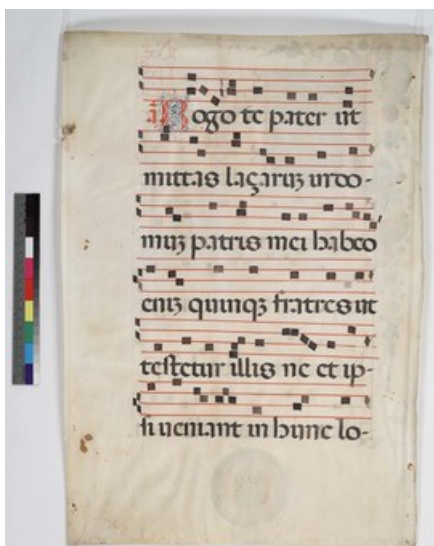 a Rogo te pater ut
mittas laçarūȝ in do-
muȝ patris mei habeo
eniȝ quinqȝ fratres ut
testetur illis ne et ip-
si ueniant in hunc lo-